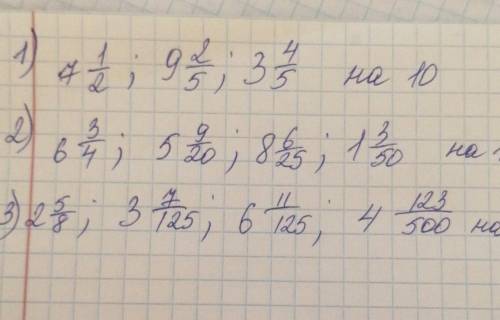 1) 7 1/2 ; 9 2/5 ; 3 4/5 на 10
2) 6 3/4 ; 5 9/20 ; 8 6/25 ; 1 3/50 на
3) 2 5/8 ; 3 7/125 ; 6 11/125 ; 4 123/500 на